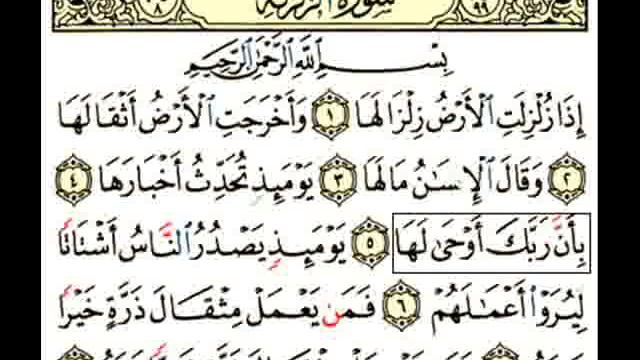 سورة الزلزلة
بِسْمِ اللَّهِ الرَّحْمَٰنِ الرَّحِيمِ
إِذَا زُلْزِلَتِ الْأَرْضُ زِلْزَالَهَا ١ وَأَخْرَجَتِ الْأَرْضُ أَثْقَالَهَا
٢ وَقَالَ الْإِنسَٰنُ مَا لَهَا ٣ يَوْمَئِذٍ تُحَدِّثُ أَخْبَارَهَا ٤
بِأَنَّ رَبَّكَ أَوْحَىٰ لَهَا ٥ يَوْمَئِذٍ يَصْدُرُ النَّاسُ أَشْتَاتًا
لِّيُرَوْا أَعْمَٰلَهُمْ ٦ فَمَن يَعْمَلْ مِثْقَالَ ذَرَّةٍ خَيْرًا